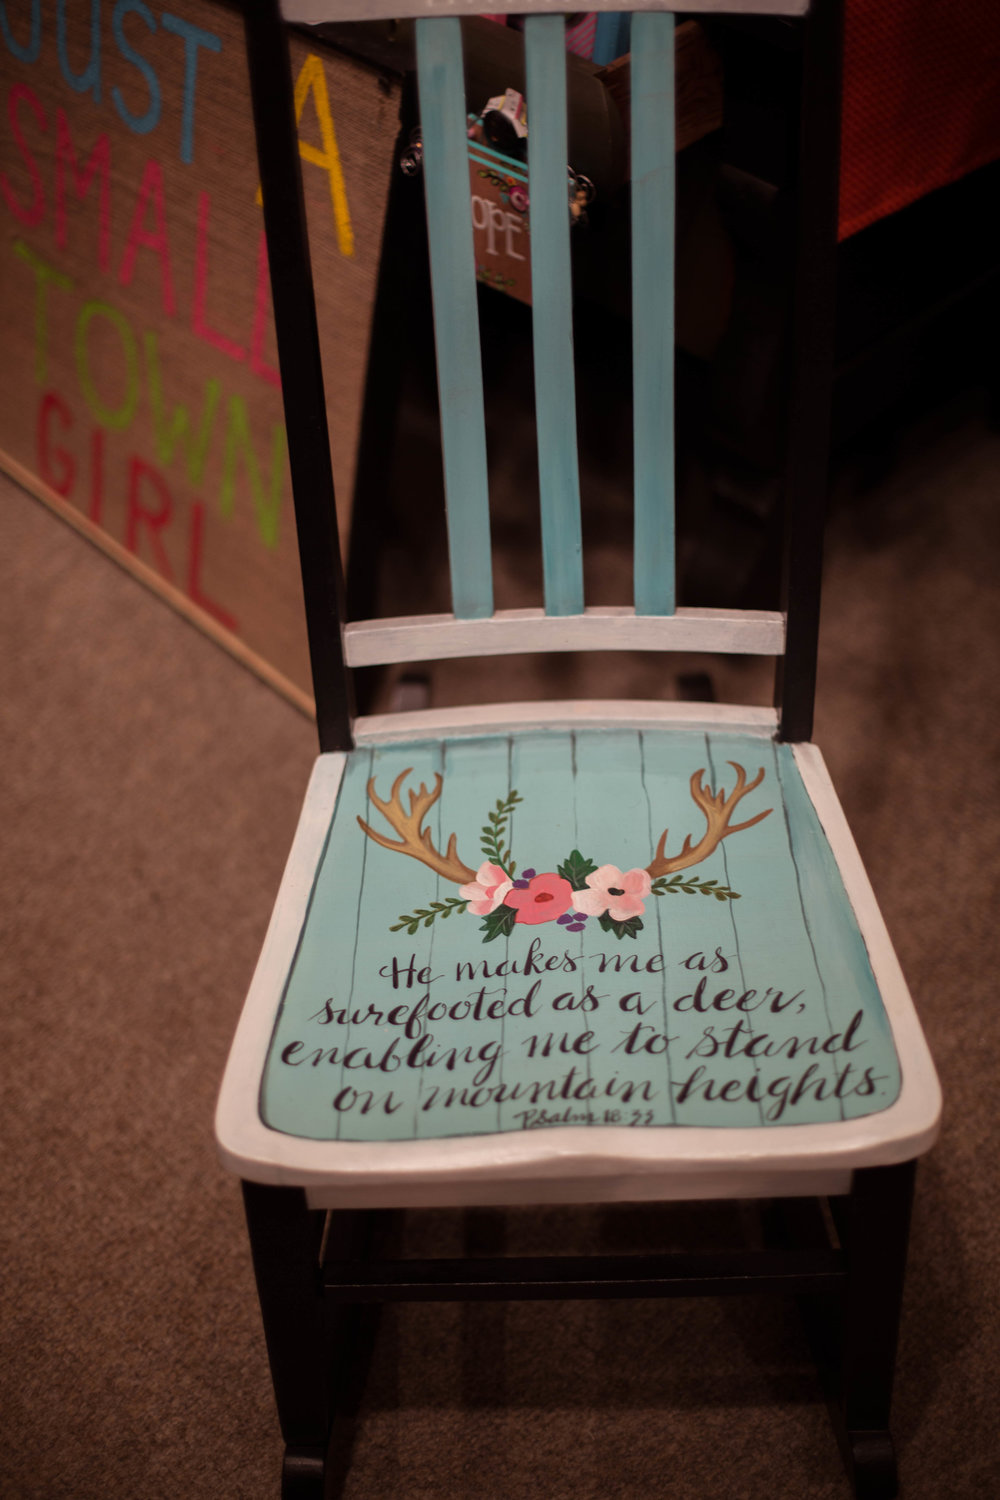 JUST
A
SMALL
TOWN
GIRL
He makes me as
surefooted as a deer,
enabling me to stand
on mountain heights.
Psalm 18:33